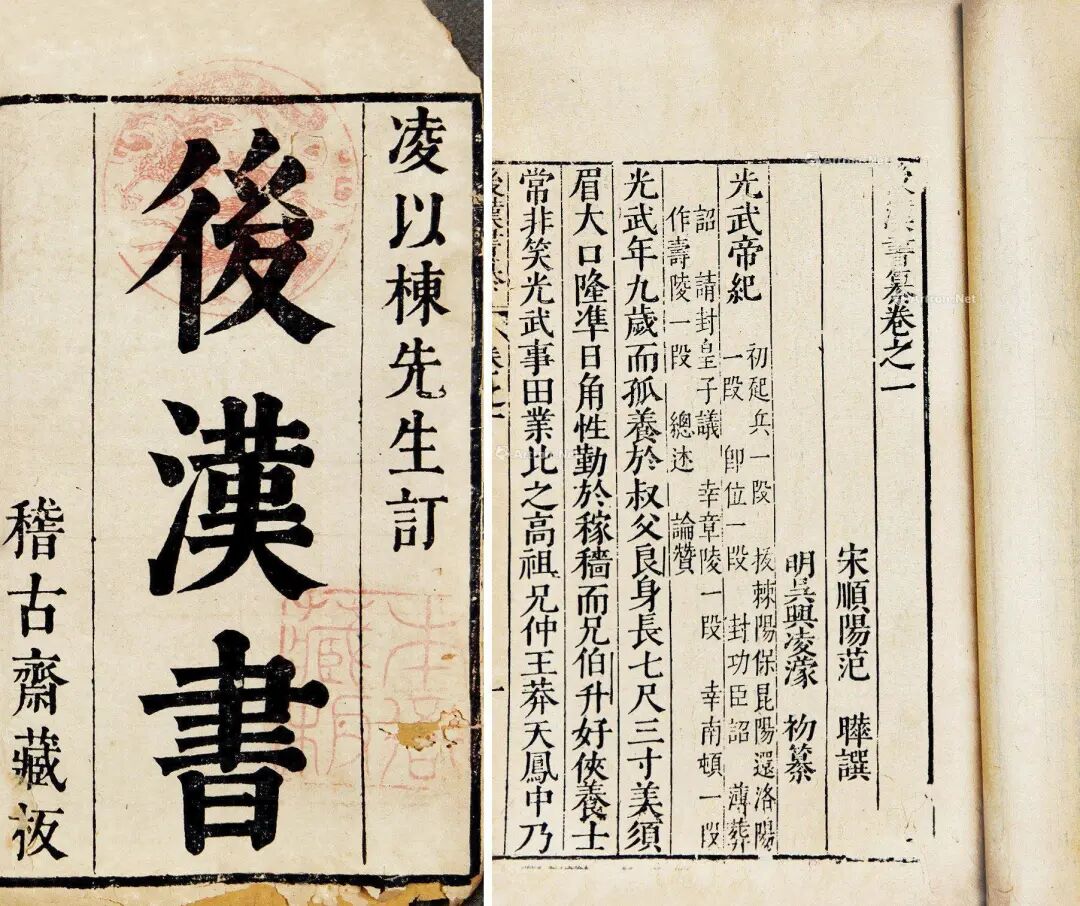 凌以棟先生訂
後漢書
稽古齋藏板
後漢書纂卷之一
宋順陽范 曄譔
明吳興凌濛 初纂
光武帝紀 初起兵一段 拔棘陽保昆陽還洛陽
一段 卽位一段 封功臣詔 薄葬
詔 請封皇子議 幸章陵一段 幸南頓一段
作壽陵一段 總述 論贊
光武年九歲而孤養於叔父良身長七尺三寸美須
眉大口隆準日角性勤於稼穡而兄伯升好俠養士
常非笑光武事田業比之高祖兄仲王莽天鳳中乃